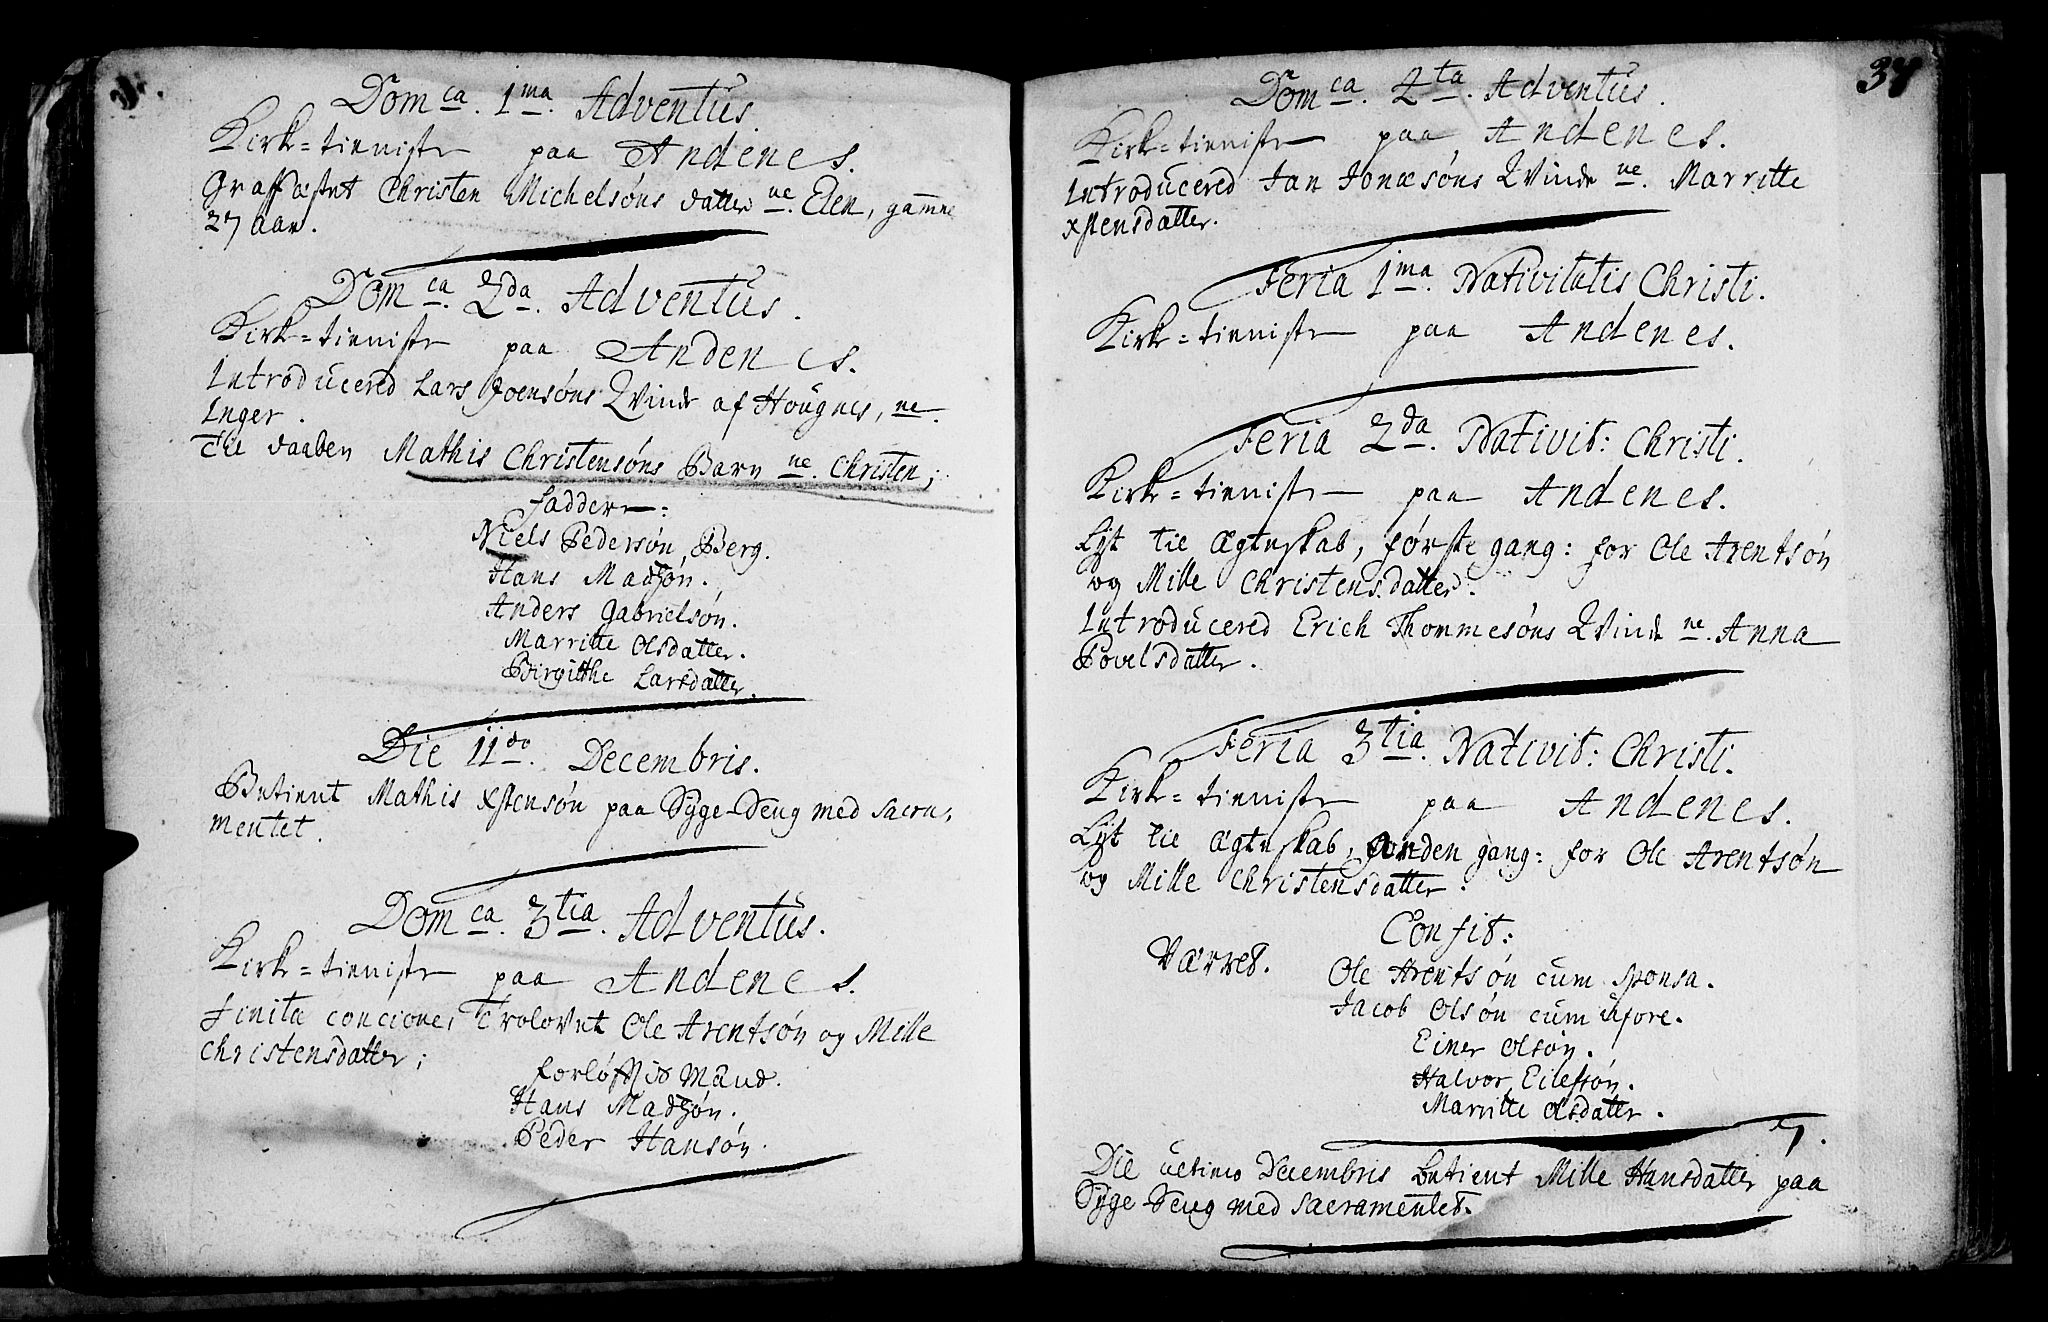 Dom ca. 1ma. Adventus.
Kirke=tieniste paa Andenes.
Graffæstet Christen Michelsøns datter ne. Elen, gamne
27 aar.
Dom ca. 2da. Adventus.
Kirke=tieniste paa Andenes.
Introducered Lars Joensøns Qvinde af Hougnes, ne.
Inger.
Til daaben Mathis Christensøns Barn ne. Christen;
faddere:
Niels Pedersøn Berg.
Hans Madsøn.
Anders Gabrielsøn.
Marritte Olsdatter.
Birgitthe Larsdatter.
Die 11do. Decembris.
Betient Mathis Xstensøn paa Syge-Seng med Sacra-
mentet.
Dom ca. 3tia. Adventus.
Kirke=tieniste paa Andenes.
Finita concione, Trolovet Ole Arentsøn og Mille
Christensdatter;
forløffnis Mænd.
Hans Madsøn.
Peder Hansøn.
34
Dom ca. 4ta. Adventus.
Kirke=tieniste paa Andenes.
Introducered Jan Jonæsøns Qvinde ne. Marritte
Xstensdatter.
Feria 1ma. Nativitatis Christi.
Kirke=tieniste paa Andenes.
Feria 2da. Nativit: Christi.
Kirke=tieniste paa Andenes.
Lyt til Ægteskab, første gang: for Ole Arentsøn
og Mille Christensdatter.
Introducered Erich Thommesøns Qvinde ne. Anna
Povelsdatter.
Feria 3tia. Nativit: Christi.
Kirke=tieniste paa Andenes.
Lyt til Ægteskab, anden gang: for Ole Arentsøn
og Mille Christensdatter.
Confit:
Værret.
Ole Arentsøn cum sponsa.
Jacob Olsøn cum uxore.
Einer Olsøn.
Halvor Eilefsøn.
Marritte Olsdatter.
7.
Die ultimo Decembris betient Mille Hansdatter paa
Syge-Seng med Sacramentet.